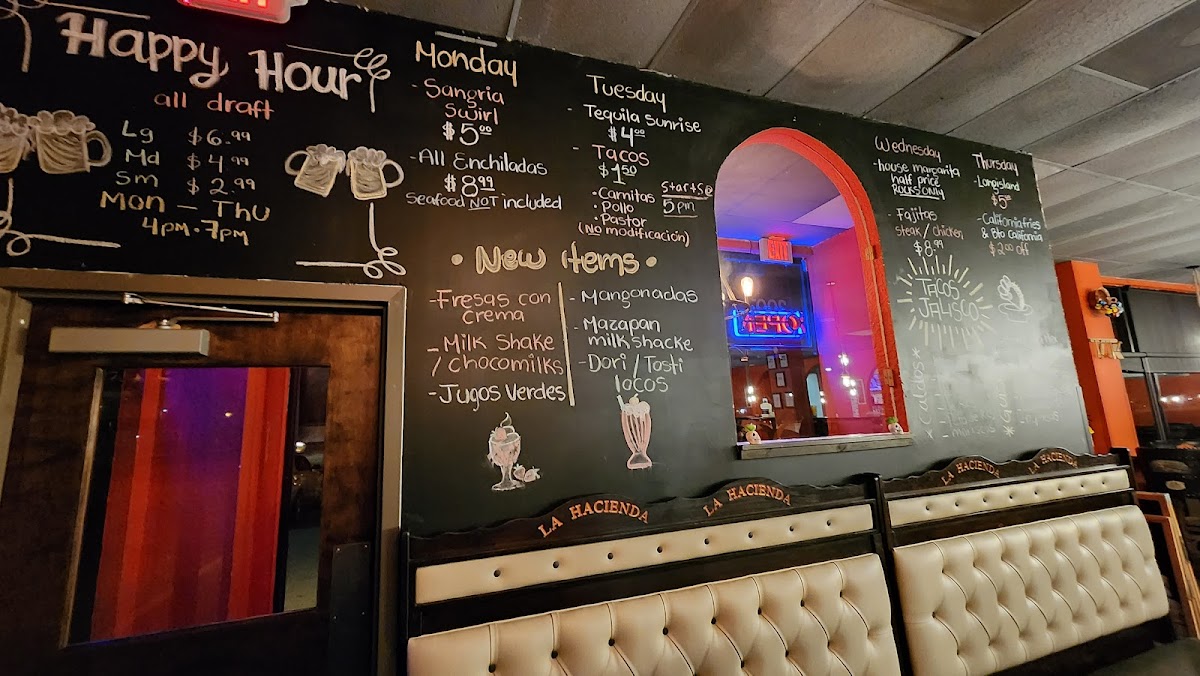 Happy Hour
all draft
Lg $6.99
Md $4.99
Sm $2.99
Mon - Thu
4pm-7pm
Monday
- Sangria
Swirl
$5.00
- All Enchiladas
$8.99
Seafood NOT included
Tuesday
- Tequila Sunrise
$4.00
- Tacos
$1.50
• Carnitas
• Pollo
• Pastor
(No modificación)
Starts@
5pm
• New items •
- Fresas con
crema
- Milk Shake
/ chocomilks
- Jugos Verdes
- Mangonadas
- Mazapan
milkshacke
- Dori / Tosti
locos
EXIT
OPEN
Wednesday
- house margarita
half price
ROCKS ONLY
- Fajitas
steak / chicken
$8.99
Thursday
- Longisland
$5.00
- California fries
& Bto California
$2.00 off
TACOS
JALISCO
Caldos
LA HACIENDA
LA HACIENDA
LA HACIENDA
LA HACIENDA